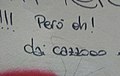 !!!
Però oh!
dai cazzooo